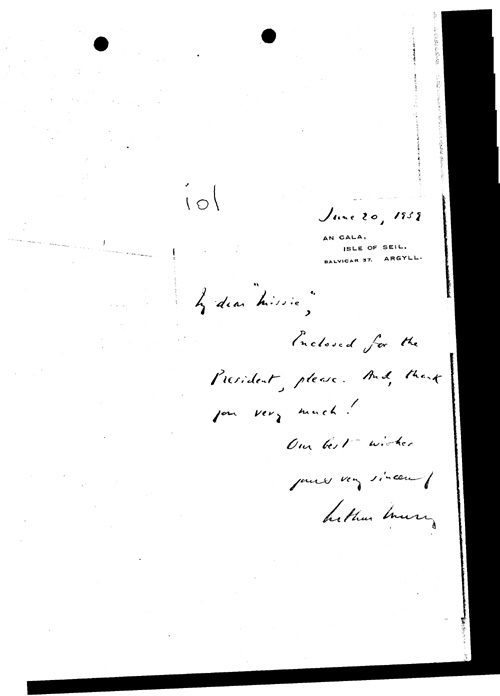 101
June 20, 1938
AN CALA,
ISLE OF SEIL,
BALVICAR 37. ARGYLL.
My dear "Missie",
Enclosed for the
President, please. And, thank
you very much!
Our best wishes
yours very sincerely
Arthur Murray